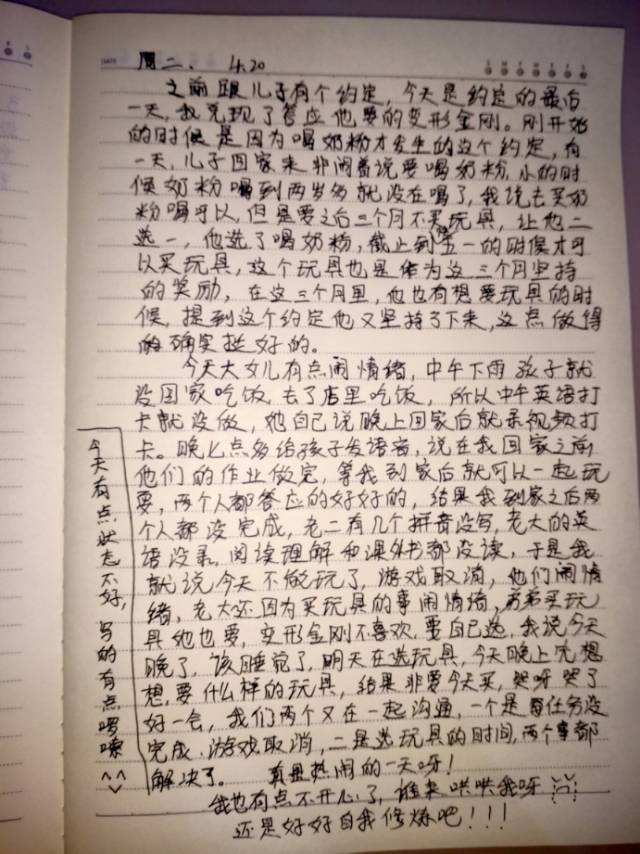 周二. 4.20
之前跟儿子有个约定,今天是约定的最后
一天,我兑现了答应他要的变形金刚。刚开始
的时候是因为喝奶粉才发生的这个约定,有
一天,儿子回家来非闹着说要喝奶粉,小的时
候奶粉喝到两岁多就没在喝了,我说去买奶
粉喝可以,但是要之后三个月不买玩具,让他二
选一,他选了喝奶粉,截止到五一的时候才可
以买玩具,这个玩具也是作为这三个月坚持
的奖励,在这三个月里,他也有想要玩具的时
候,提到这个约定他又坚持了下来,这点做得
的确实挺好的。
今天大女儿有点闹情绪,中午下雨孩子就
没回家吃饭,去了店里吃饭,所以中午英语打
卡就没做,她自己说晚上回家后就录视频打
卡。晚七点多给孩子发语音,说在我回家之前
他们的作业做完,等我到家后就可以一起玩
耍,两个人都答应的好好的,结果我到家之后两
个人都没完成,老二有几个拼音没写,老大的英
语没录,阅读理解和课外书都没读,于是我
就说今天不能玩了,游戏取消,他们闹情
绪,老大还因为买玩具的事闹情绪,弟弟买玩
具她也要,变形金刚不喜欢,要自己选,我说今天
晚了,该睡觉了,明天在选玩具,今天晚上先想
想,要什么样的玩具,结果非要今天买,哭呀哭了
好一会,我们两个又在一起沟通,一个是因任务没
完成,游戏取消,二是选玩具的时间,两个事都
解决了。 真是热闹的一天呀!
我也有点不开心了,谁来哄哄我呀
还是好好自我修炼吧!!!
今天有点状态不好,写的有点啰嗦^^